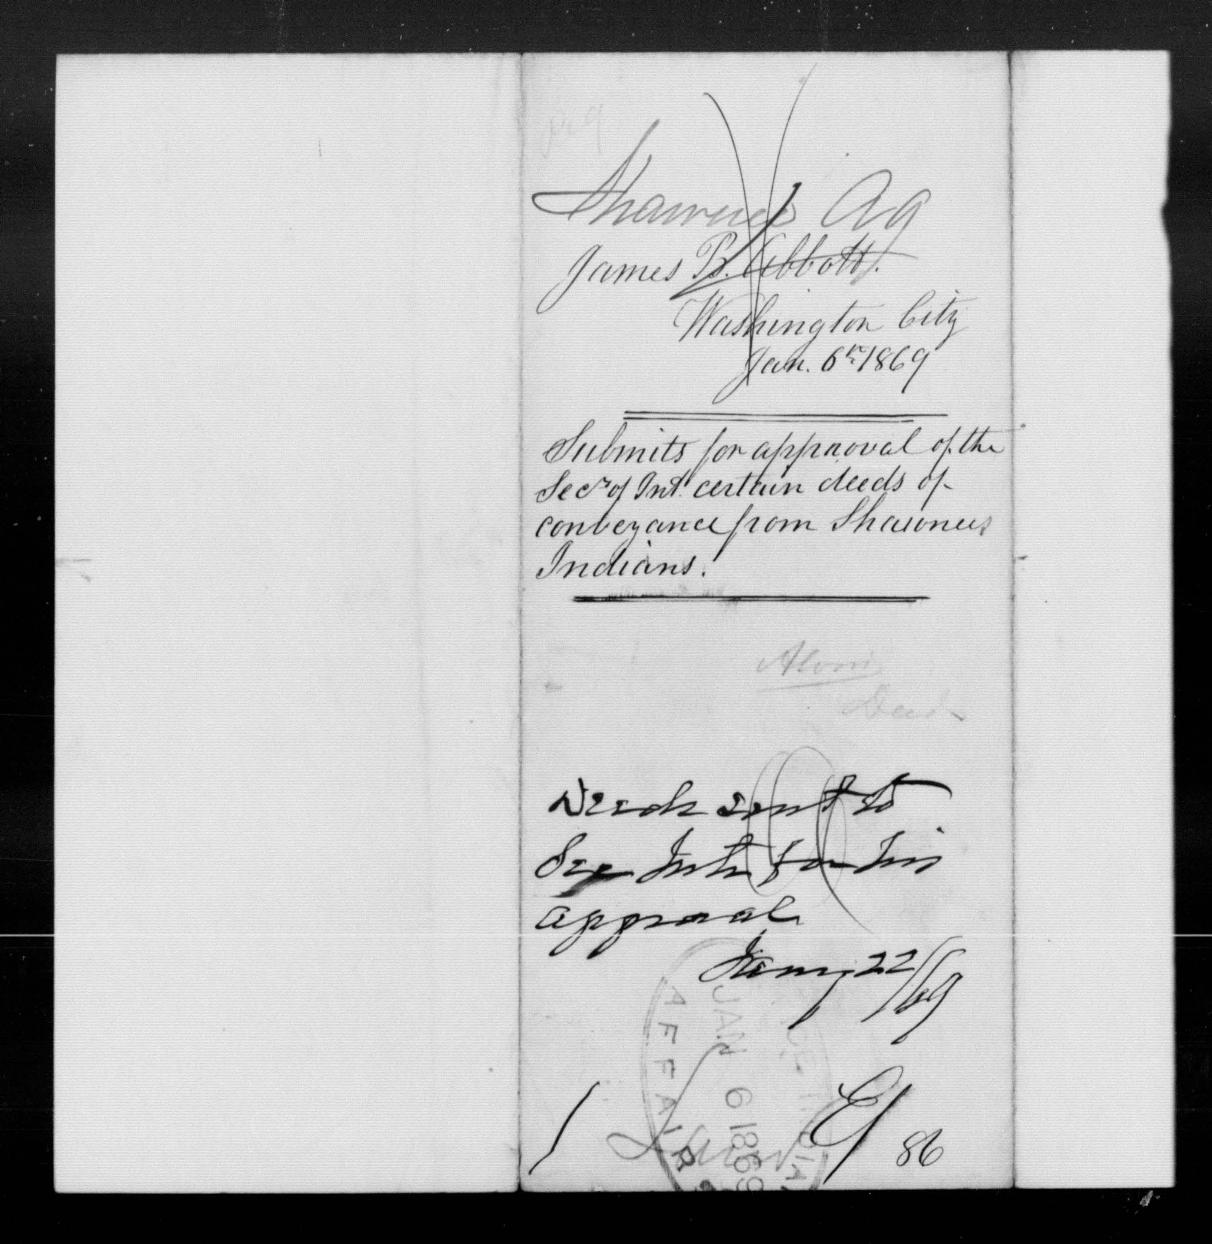 Shawnee Ag
James B. Abbott.
Washington City
Jan. 6th 1869
Submits for approval of the
Secy of Int. certain deeds of
conveyance from Shawnees
Indians.
Deeds sent to
Sec Intr for his
approval
Jany 22/69
OFFICE INDIAN AFFAIRS
JAN 6 1869
1
86